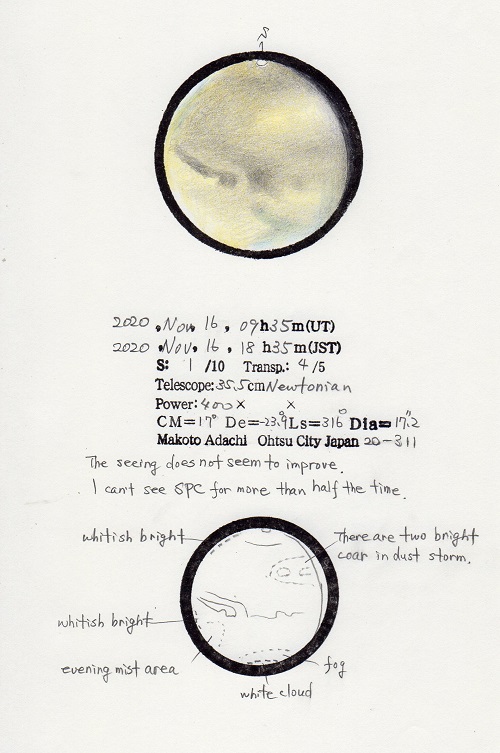 S
2020 , Nov, 16 , 09h35m(UT)
2020 , Nov, 16 , 18 h35m(JST)
S: 1 /10 Transp.: 4/5
Telescope: 35.5cm Newtonian
Power: 400× ×
CM=17° De=-23.9° Ls=316° Dia=17."2
Makoto Adachi Ohtsu City Japan 20-311
The seeing does not seem to improve.
I can't see SPC for more than half the time.
whitish bright
There are two bright
coar in dust storm.
whitish bright
evening mist area
fog
white cloud